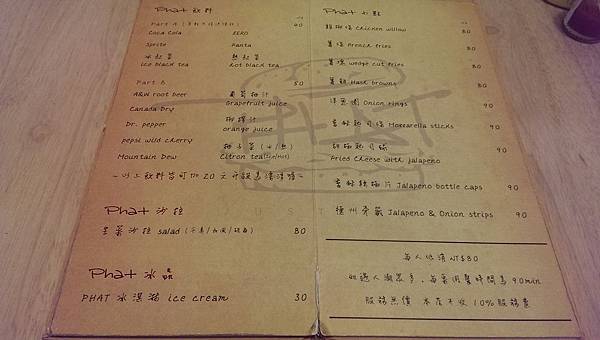 Phat 飲料
Part A
40
Coca Cola ZERO
Sprite Fanta
冰紅茶 熱紅茶
ice black tea hot black tea
Part B 50
A&W root beer 葡萄柚汁
Grapefruit juice
Canada Dry 柳橙汁
Dr. pepper orange juice
pepsi wild cherry 柚子茶 (冰/熱)
Mountain Dew Citron tea(ice/hot)
~以上飲料皆可加20元升級為漂浮~
Phat 沙拉
生菜沙拉 salad 80
Phat 冰品
PHAT 冰淇淋 ice cream 30
Phat 炸點
雞柳條 Chicken willow 80
薯條 French fries 80
薯塊 wedge cut fries 80
薯餅 Hash browns 80
洋蔥圈 Onion rings 90
Mozzarella sticks 90
Fried Cheese with jalapeno 90
Jalapeno bottle caps 90
德州 Jalapeno & Onion strips 90
每人低消NT$80
如遇人潮眾多，每桌用餐時間為90min
服務無價 本店不收10%服務費